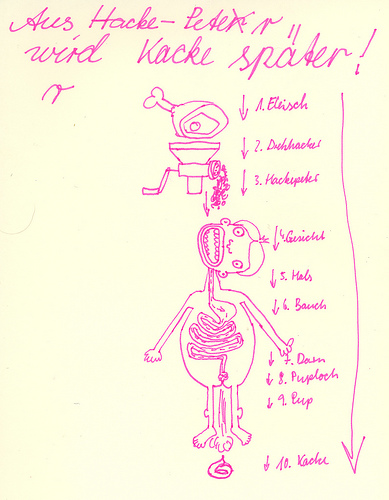 Aus Hacke-Peter
wird Kacke später!
r
1. Fleisch
2. Drehhacker
3. Hackepeter
4. Gesicht
5. Hals
6. Bauch
7. Darm
8. Puploch
9. Pup
10. Kacke